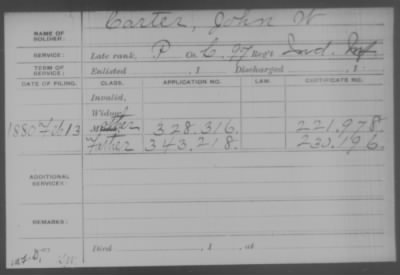 NAME OF SOLDIER: Carter, John W
SERVICE: Late rank, P Co. C, 97 Reg't Ind. Inf.
TERM OF SERVICE: Enlisted , 1 Discharged , 1
DATE OF FILING. CLASS. APPLICATION NO. LAW. CERTIFICATE NO.
Invalid,
Widow,
1880 Feb 13 Mother 328.316. 221.978.
Father 343.218. 230.196.
ADDITIONAL SERVICES:
REMARKS:
Died , 1 , at